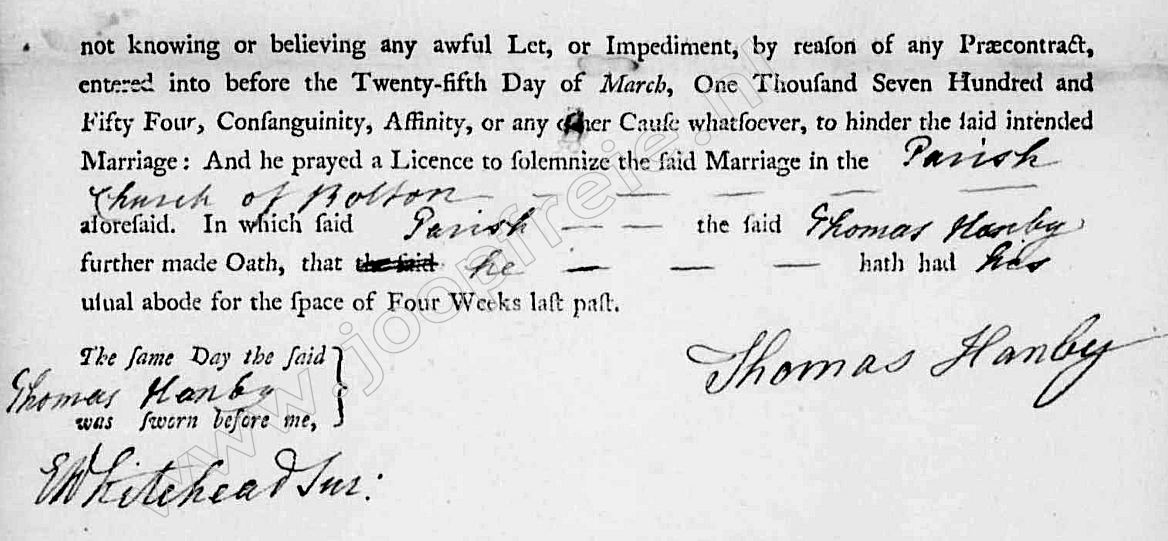 not knowing or believing any awful Let, or Impediment, by reaſon of any Præcontract,
entered into before the Twenty-fifth Day of March, One Thouſand Seven Hundred and
Fifty Four, Conſanguinity, Affinity, or any other Cauſe whatſoever, to hinder the ſaid intended
Marriage: And he prayed a Licence to ſolemnize the ſaid Marriage in the Parish
Church of Bolton — — — — — —
aforeſaid. In which ſaid Parish — — the ſaid Thomas Hanby
further made Oath, that the ſaid he — — — hath had his
uſual abode for the ſpace of Four Weeks laſt paſt.
Thomas Hanby
The ſame Day the ſaid
Thomas Hanby
was ſworn before me,
EWhitehead Sur:
www.joopfreie.nl